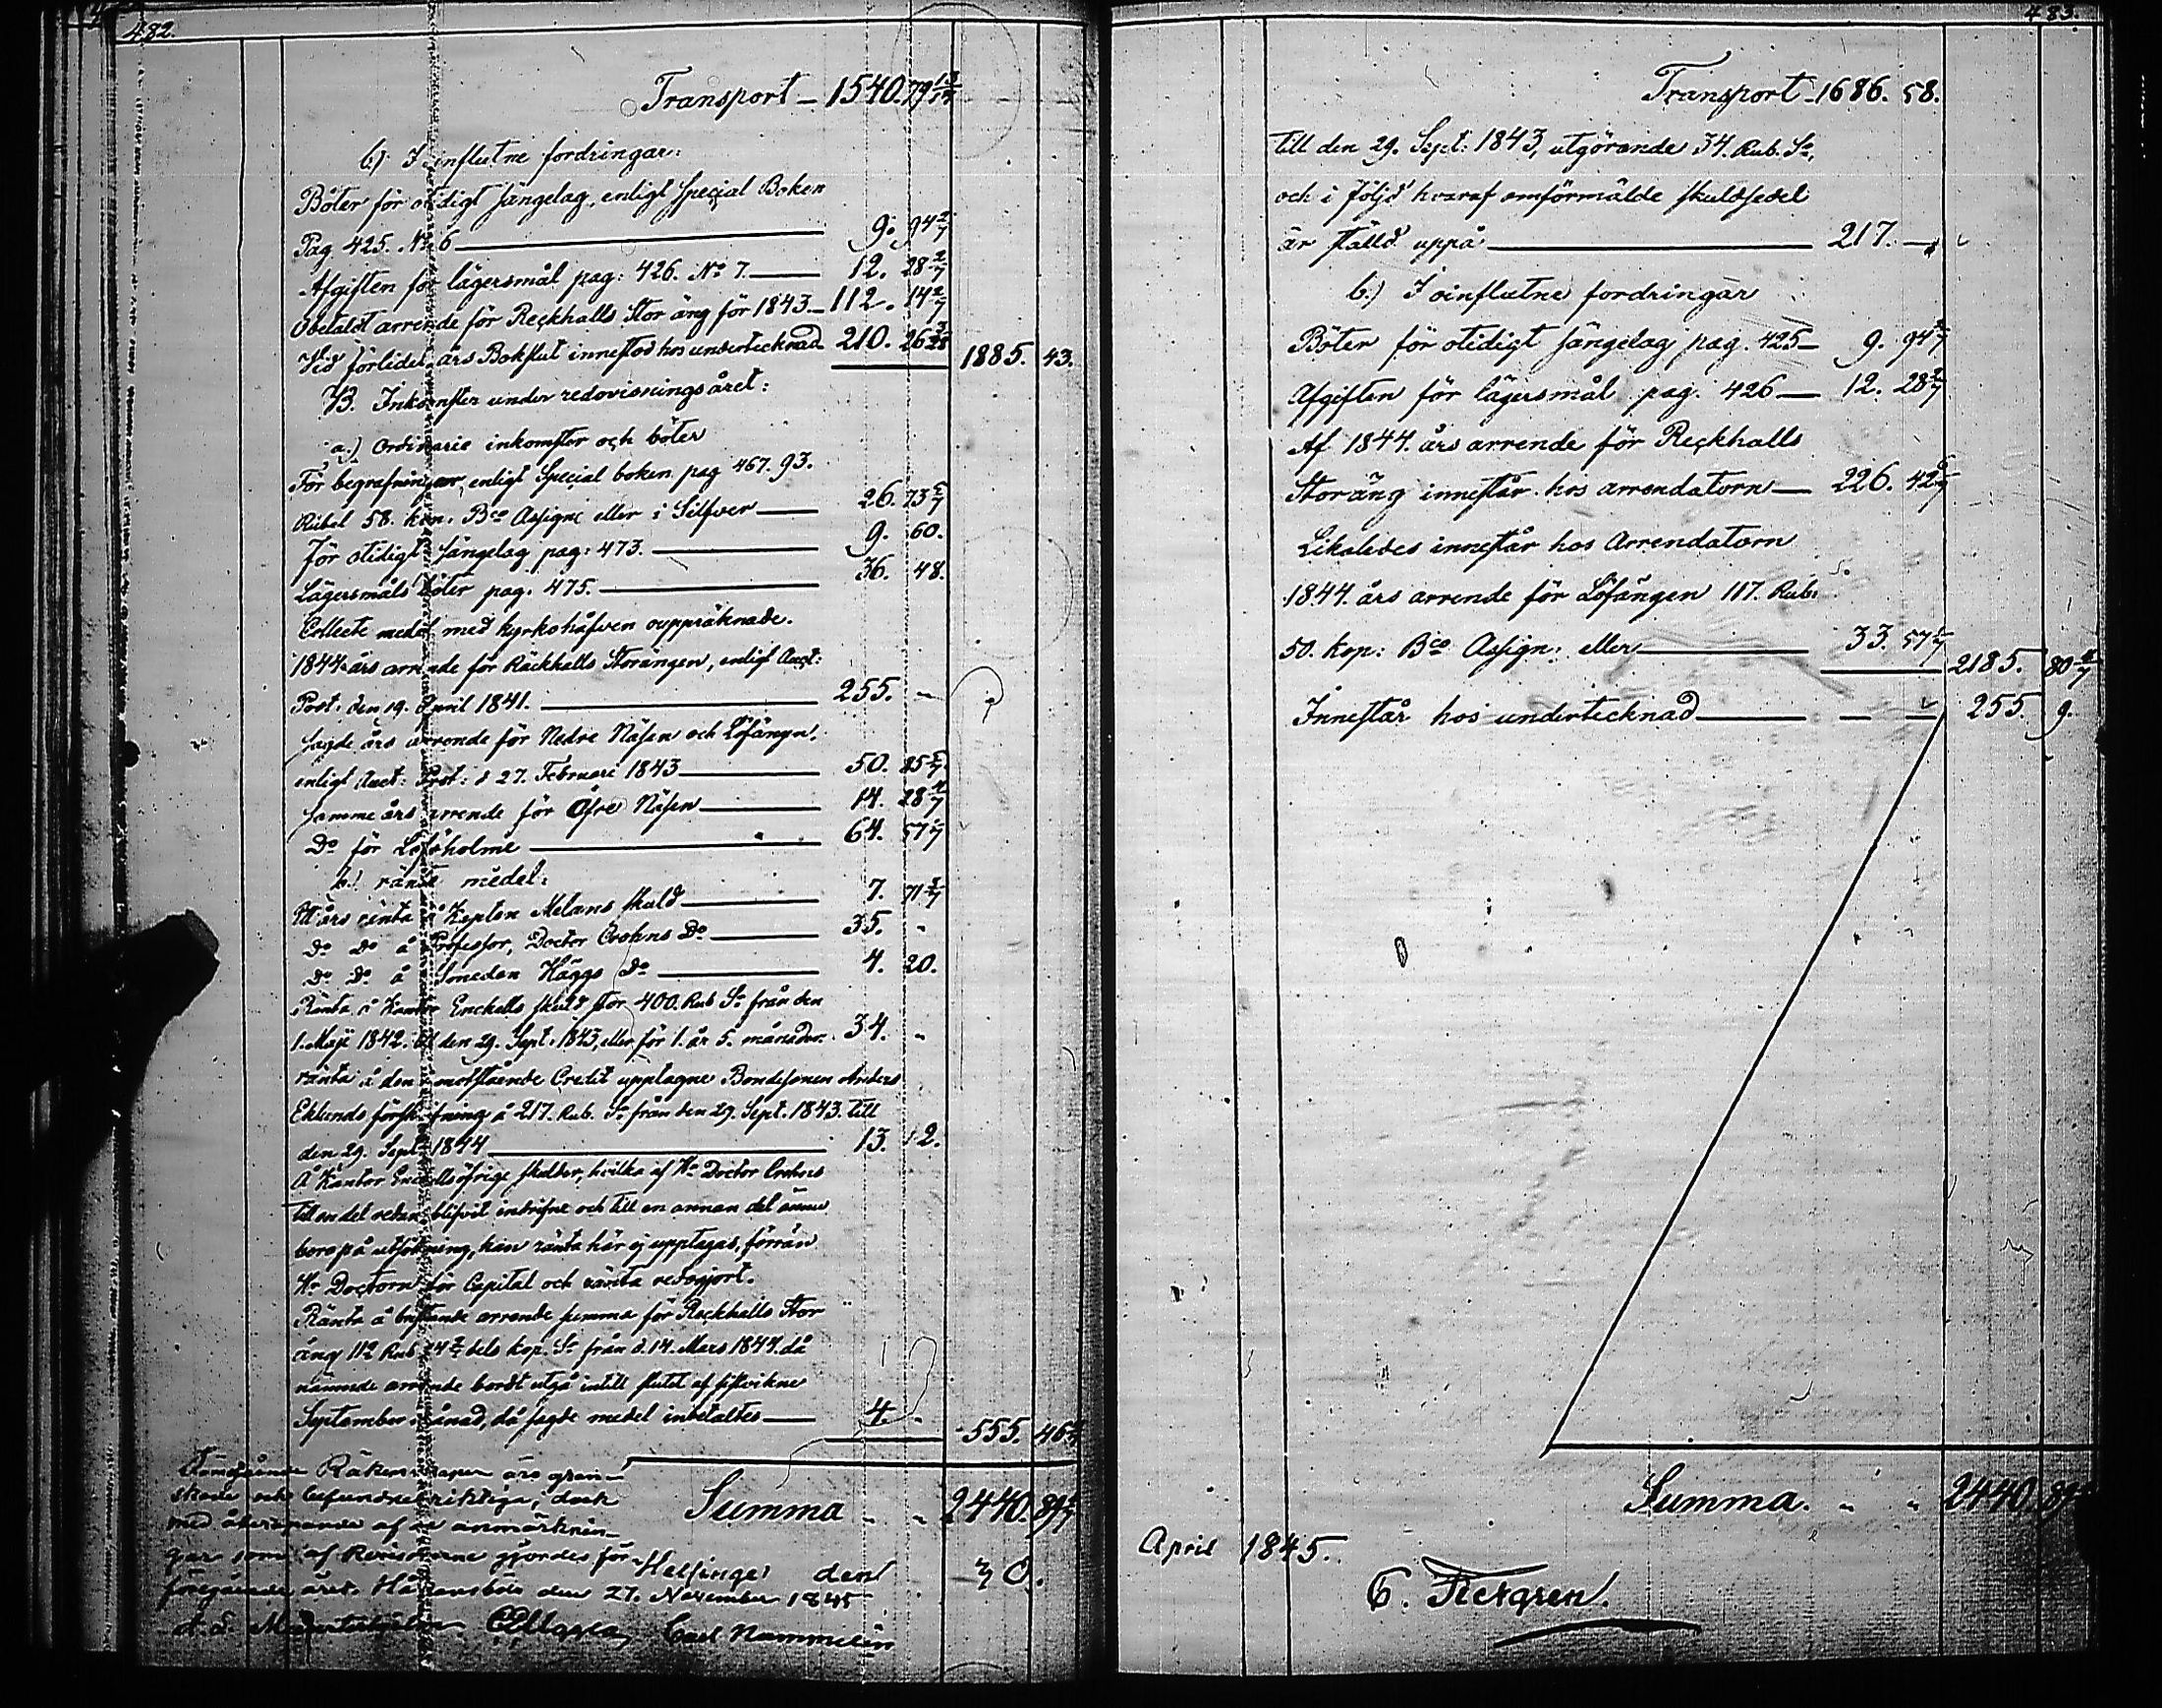 482.
Transport – 1540. 79 13/14
b) I influtne fordringar:
Böter för otidigt sängelag, enligt Special Boken
Pag 425. No 6 — 9. 94 2/7
Afgiften för lägersmål pag: 426. No 7. — 12. 28 2/7
Obetaldt arrende för Reckhalls Stor äng för 1843 – 112. 14 2/7
Vid förledet års Bokslut innestod hos undertecknad 210. 26 3/28 1885. 43.
B. Inkomster under redovisningsåret:
a.) Ordinarie inkomster och böter
För begrafningar, enligt Special boken pag 467. 93.
Rubel 58. kop. Bco Assigne eller i Silfver — 26. 73 5/7
För otidigt sängelag pag: 473. — 9. 60.
Lägersmåls böter pag. 475. — 36. 48.
Collecte medel med kyrkohåfven ouppräknade.
1844 års arrende för Räckhalls Storängen, enligt Auct:
Prot. den 19. April 1841. — 255. –
sagde års arrende för Nedre Näsen och Löfängen,
enligt Auct: Prot: d 27. Februari 1843 — 50. 85 5/7
samme års arrende för Öfre Näsen — 14. 28 4/7
Do för Löfholme — 64. 57 1/7
b.) ränte medel:
Ett års ränta å Kapten Melans skuld — 7. 71 3/7
Do Do å Professor, Doctor Crohns Do — 35. "
Do Do å Smeden Häggs Do — 4. 20.
Ränta å Kantor Enckells skuld stor 400. Rub Sr från den
1. Maji 1842. till den 29. Sept. 1843, eller för 1. år 5. månader. 34. "
ränta å den i motstående Credit upptagne Bondesonen Anders
Eklunds förskrifning å 217. Rub. Sr från den 29. Sept. 1843. till
den 29. Sept. 1844 — 13. 12.
Å Kantor Enckells öfrige skulder, hvilka af Hr Doctor Crohns
till en del redan blifvit indrifne och till en annan del ännu
bero på utsökning, kan ränta här ej upptagas, förrän
Hr Doctorn för Capital och ränta redogjort.
Ränta å bristande arrende summa för Reckhalls Stor
äng 112 Rub 14 2/7 dels kop. Sr från d. 14. Mars 1844. då
nämnde arrende bordt utgå intill slutet af sistvikne
September månad, då sagde medel inbetaltes — 4. " 555. 46 4/7
Summa " " 2440. 89 4/7
Helsinge den 30.
Räkenskaper äro gran-
skade och befundne riktige, dock
med återopande af de anmärknin-
gar som af Revisorerne gjordes för
föregående året. den 27. November 1845
Carl Nummelin
483.
Transport – 1686. 58.
till den 29. Sept: 1843, utgörande 34. Rub. Sr,
och i följd hvaraf omförmälde skuldsedel
är ställd uppå — 217. –
b.) I oinflutne fordringar
Böter för otidigt sängelag pag. 425 – 9. 94 2/7
Afgiften för lägersmål pag. 426 — 12. 28 2/7
Af 1844. års arrende för Reckhalls
Storäng innestår hos arrendatorn — 226. 42 6/7
Likaledes innestår hos Arrendatorn
1844. års arrende för Löfängen 117. Rub:
50. kop: Bco Assign: eller — 33. 57 1/7 2185. 80 4/7
Innestår hos undertecknad — — — 255. 9.
Summa. " " 2440. 89 4/7
April 1845.